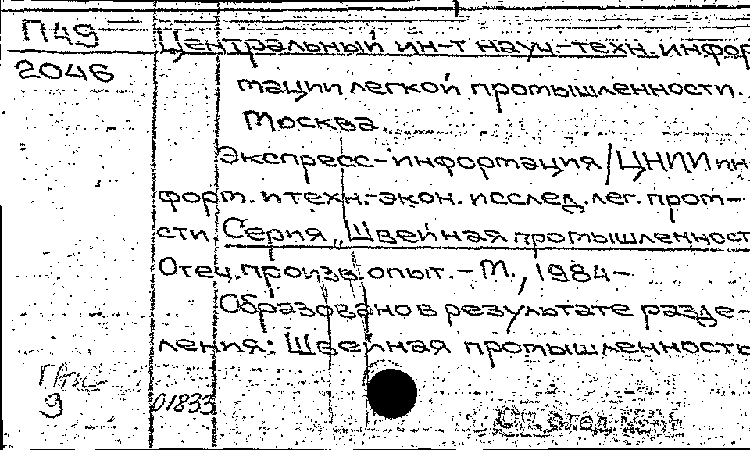 П49
2046
Центральный ин-т науч-техн. инфор
мации легкой промышленности.
Москва.
Экспресс-информация/ЦНИИ ин
форм. и техн.-экон. исслед. лег. пром-
сти. Серия „Швейная промышленност
Отеч. произв. опыт. - М., 1984-
Образовано в результате разде-
ления: Швейная промышленность
9
01833